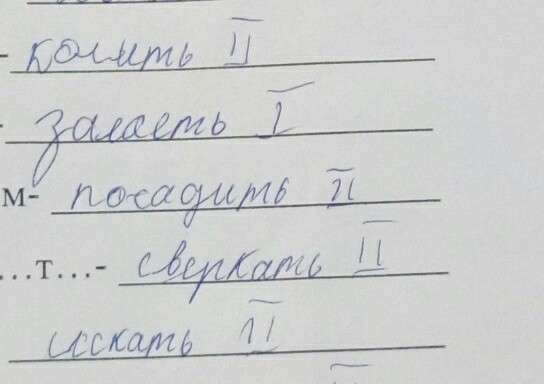 - колить II
- залаеть I
м- посадить II
...т...- сверкать II
искать II